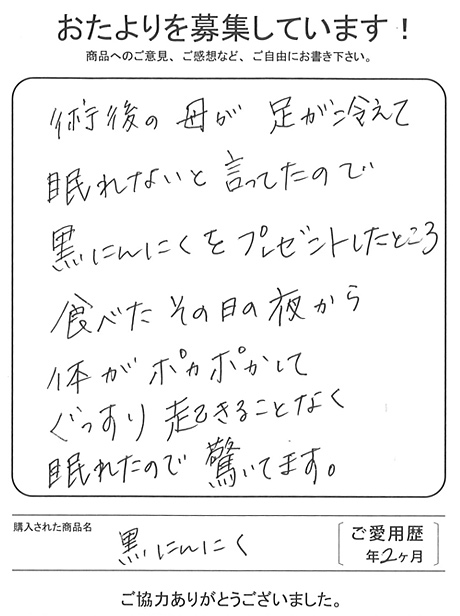 おたよりを募集しています！
商品へのご意見、ご感想など、ご自由にお書き下さい。
術後の母が 足が冷えて
眠れないと言ってたので
黒にんにくをプレゼントしたところ
食べたその日の夜から
体がポカポカして
ぐっすり起きることなく
眠れたので驚いてます。
購入された商品名
黒にんにく
ご愛用歴
年2ヶ月
ご協力ありがとうございました。